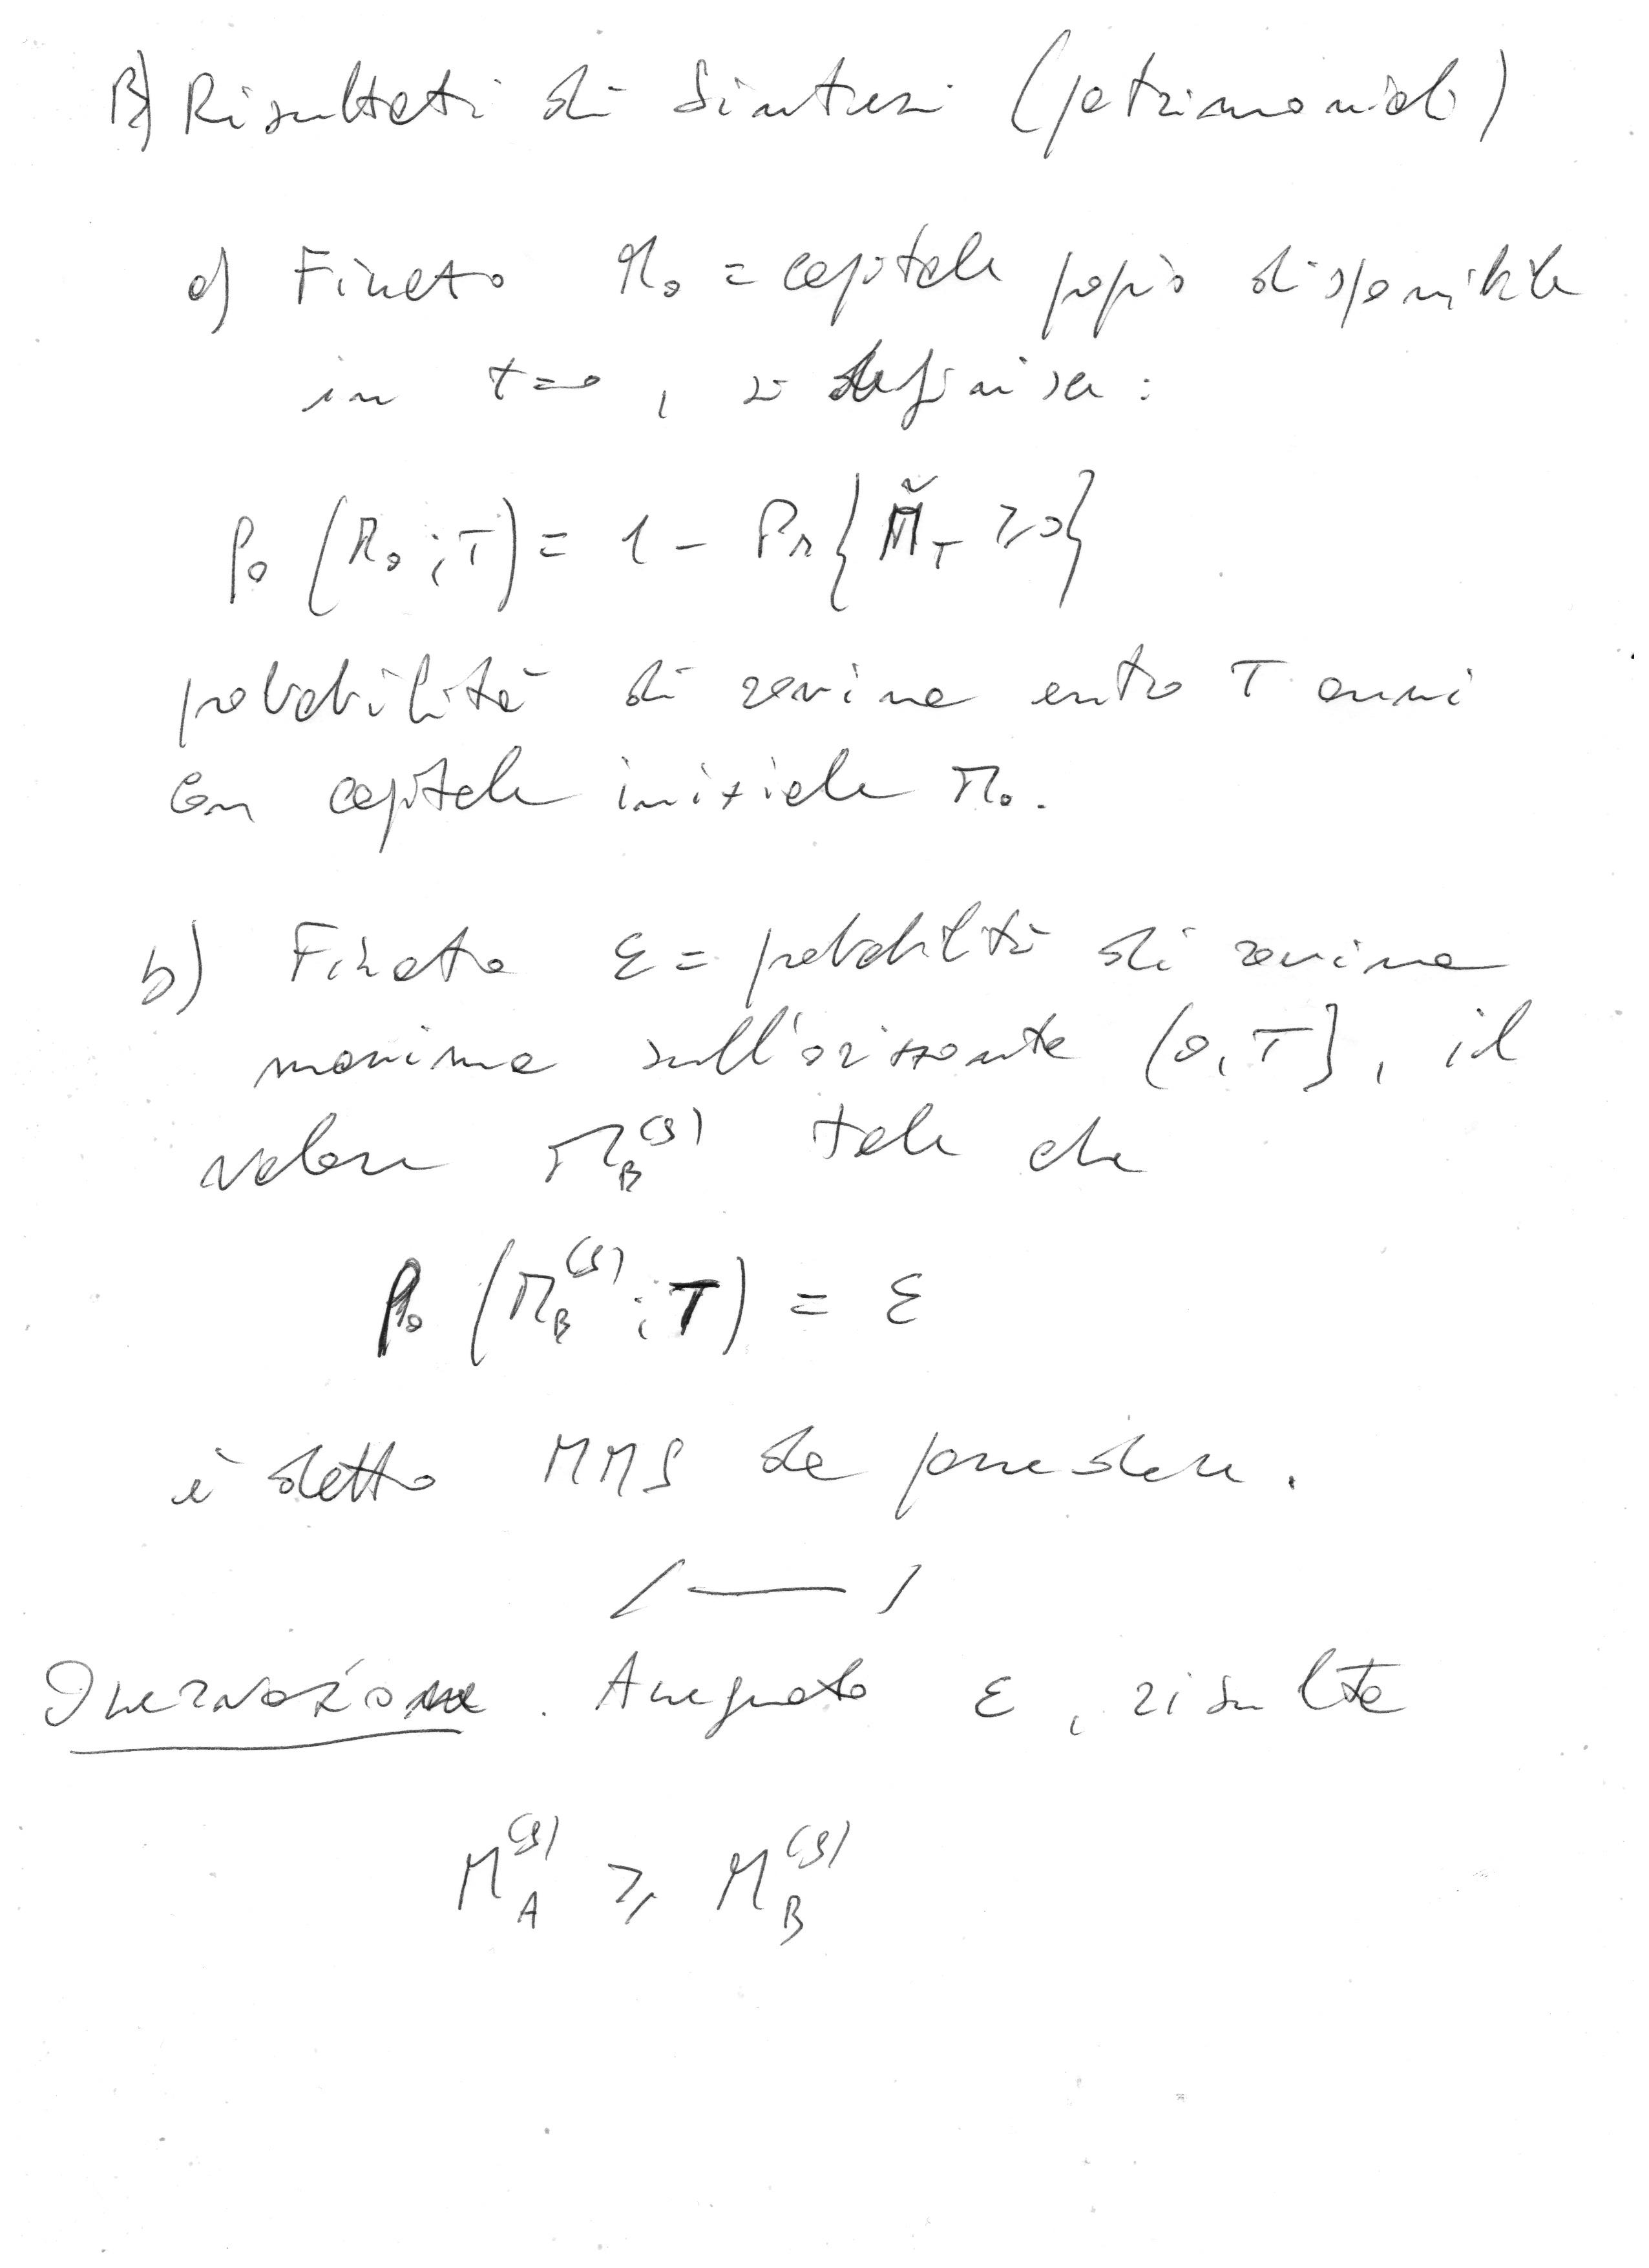 B) Risultati di sintesi (patrimoniali)
a) Fissato M₀ = capitale proprio disponibile
in t=0, si definisce:
p₀ (M₀; T) = 1 - Pr{M̃_T ≥ 0}
probabilità di rovina entro T anni
con capitale iniziale M₀.
b) Fissata ε = probabilità di rovina
massima sull'orizzonte (0, T], il
valore M_B^(s) tale che
p₀ (M_B^(s); T) = ε
è detto MMS da possedere.
Osservazione. Assegnato ε, risulta
M_A^(s) ≥ M_B^(s)